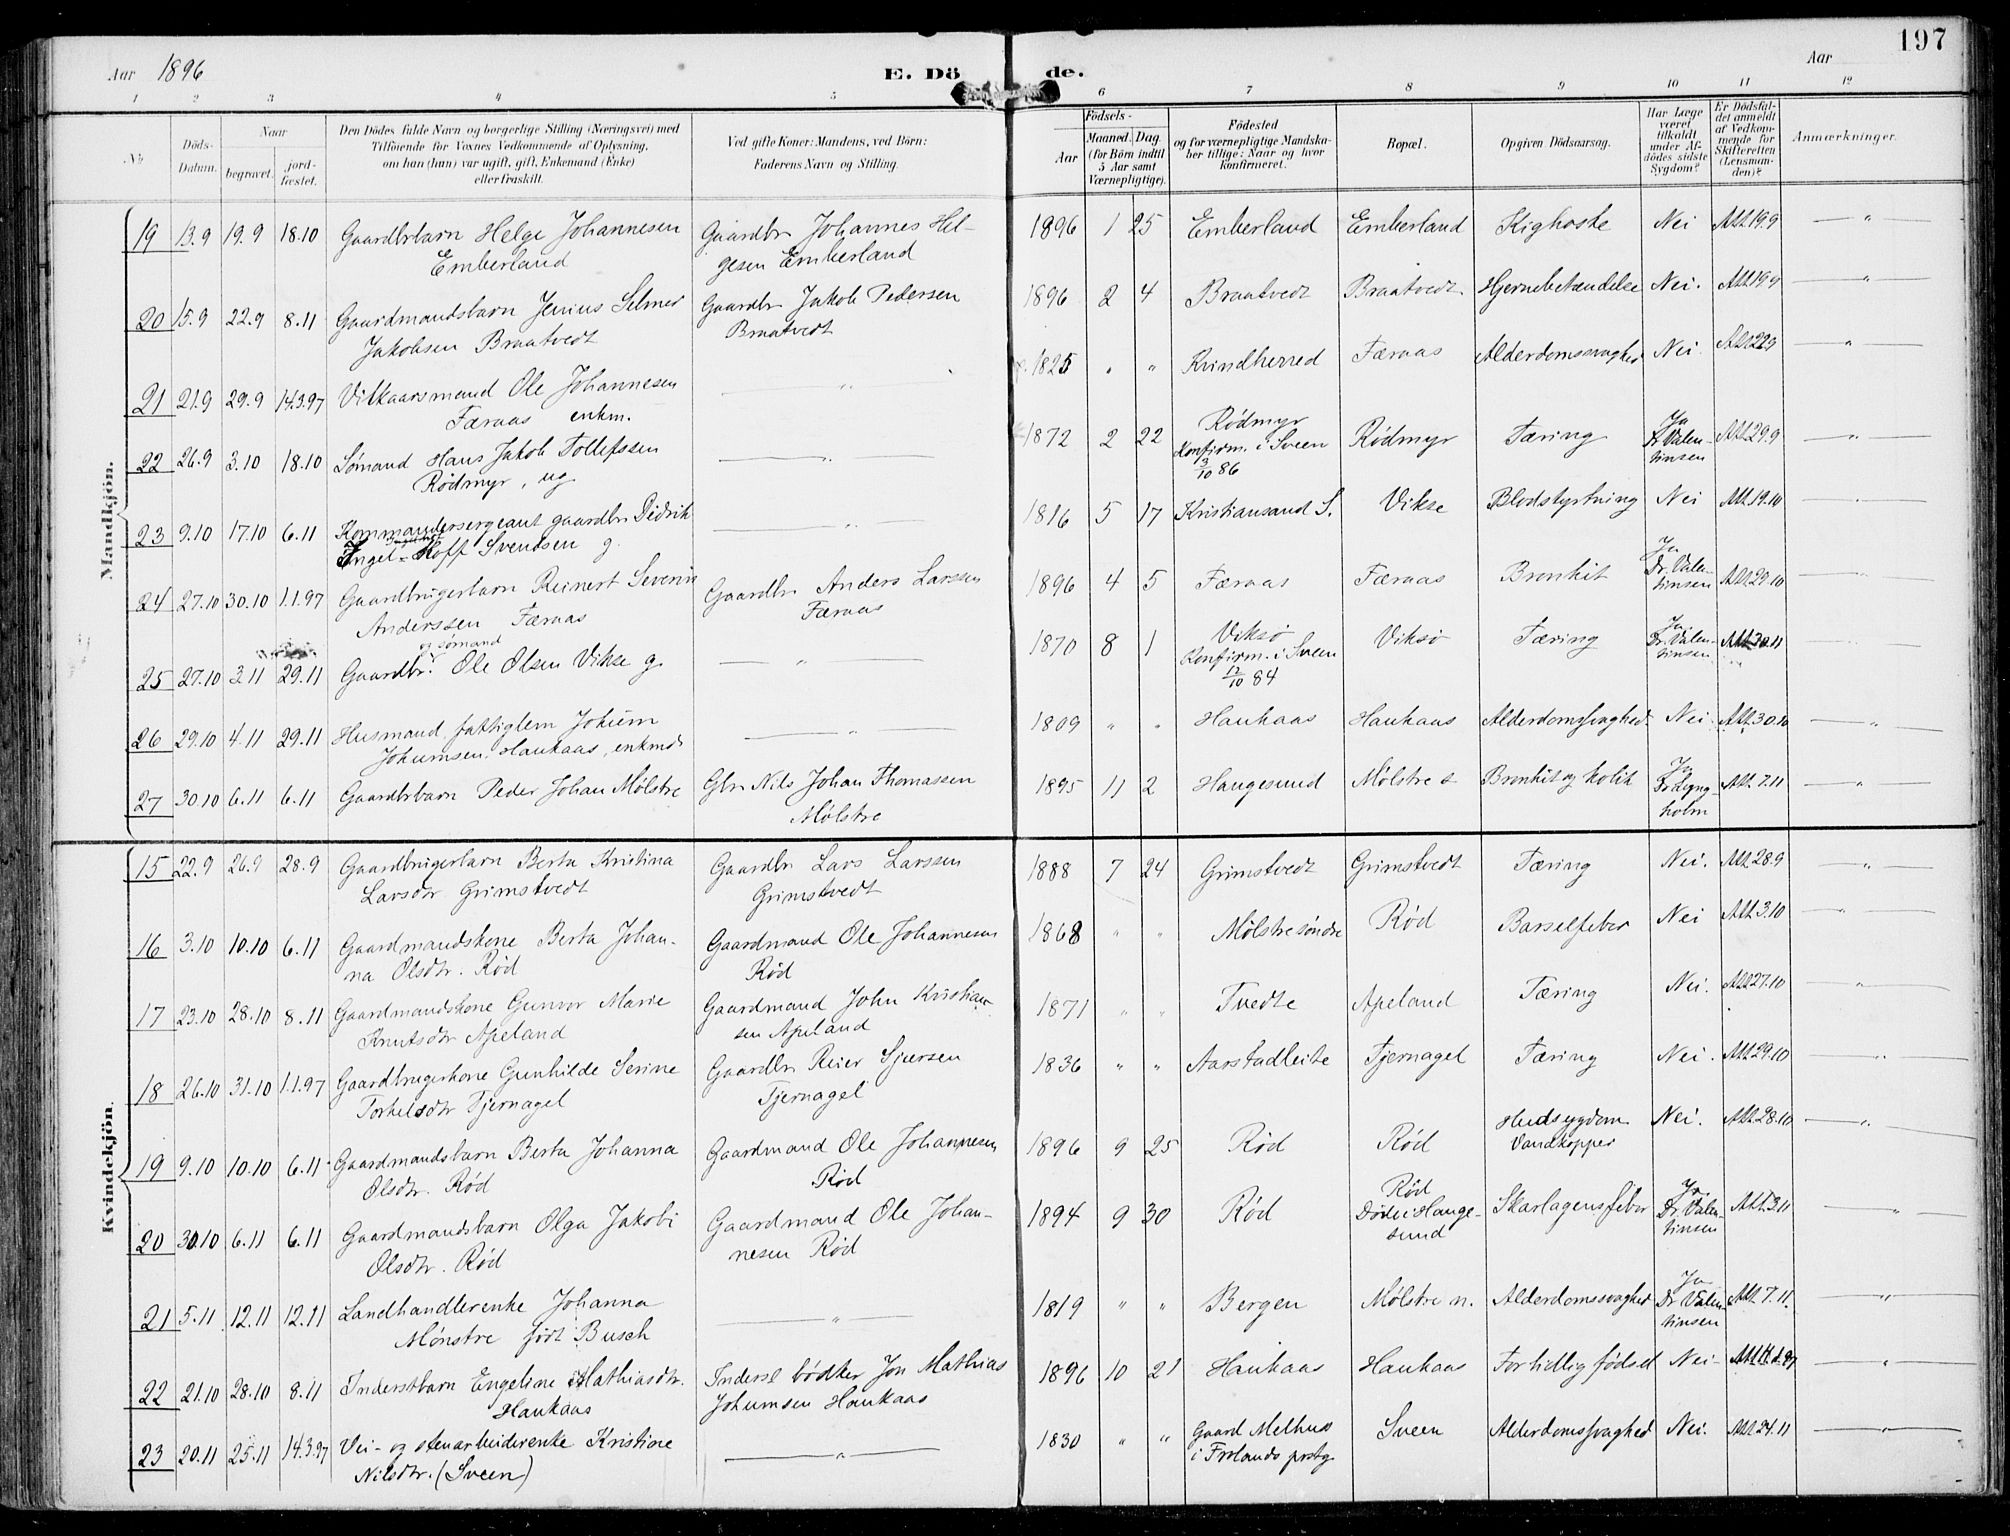 197
Aar 1896 E. Döde. Aar
1 2 3 4 5 6 7 8 9 10 11 12
No
Döds-Datum.
Naar
begravet.
jord-fæstet.
Den Dödes fulde Navn og borgerlige Stilling (Næringsvei) med
Tilföiende for Voxnes Vedkommende af Oplysning,
om han (hun) var ugift, gift, Enkemand (Enke)
eller fraskilt.
Ved gifte Koner: Mandens, ved Börn:
Faderens Navn og Stilling.
Födsels-
Aar
Maaned. Dag.
(for Börn indtil
5 Aar samt
Værnepligtige).
Födested
og for værnepligtige Mandska-
ber tillige: Naar og hvor
konfirmeret.
Bopæl.
Opgiven Dödsaarsag.
Har Læge
været
tilkaldt
under Af-
dödes sidste
Sygdom?
Er Dödsfal-
det anmeldt
af Vedkom-
mende for
Skifteretten
(Lensman-
den)?
Anmærkninger.
Mandkjön.
19 13.9 19.9 18.10 Gaardbrbarn Helge Johannesen Gaardbr Johannes Hel- 1896 1 25 Emberland Emberland Kighoste Nei Att. 19.9 "
Emberland gesen Emberland
20 15.9 22.9 8.11 Gaardmandsbarn Jenius Selmer Gaardbr Jakob Pedersen 1896 2 4 Braatvedt Braatvedt Hjernebetændelse Nei. Att 19.9 "
Jakobsen Braatvedt Braatvedt
21 21.9 29.9 14.3.97 Vilkaarsmand Ole Johannesen " 1825 " " Kvindherred Færaas Alderdomssvaghed Nei. Att. 22.9 "
Færaas enkm.
22 26.9 3.10 18.10 Sømand Hans Jakob Tollefssen " 1872 2 22 Rødmyr Rødmyr Tæring Ja Att. 29.9 "
Rødmyr, ug Konfirm. i Sveen Dr. Valen-
3/10 86 tinsen
23 9.10 17.10 6.11 Kommandersergeant gaardbr. Didrik " 1816 5 17 Kristiansand S. Vikse Blodstyrtning Nei Att. 19.10 "
Engel- Hoff Svendsen g.
24 27.10 30.10 1.1.97 Gaardbrugerbarn Reinert Severin Gaardbr Anders Larssen 1896 4 5 Færaas Færaas Bronkit Ja Att. 29.10 "
Anderssen Færaas Færaas Dr. Valen-
tinsen
og sømand
25 27.10 3.11 29.11 Gaardbr. Ole Olsen Vikse g. " 1870 8 1 Viksø Viksø Tæring Ja Att 30.11
Konfirm. i Sveen Dr. Valen-
12/10 84 tinsen
26 29.10 4.11 29.11 Husmand, fattiglem Johum " 1809 " " Haukaas Haukaas Alderdomssvaghed Nei. Att. 30.10 "
Johumsen Haukaas, enkmd.
27 30.10 6.11 6.11 Gaardbrbarn Peder Johan Mølstre Gbr. Nils Johan Thomassen 1895 11 2 Haugesund Mølstre s Bronkit og kolik Ja Att. 7.11 "
Mølstre Dr. Lyng-
holm
Kvindekjön.
15 22.9 26.9 28.9 Gaardbrugerbarn Berta Kristina Gaardbr Lars Larssen 1888 7 24 Grimstvedt Grimstvedt Tæring Nei. Att. 28.9 "
Larsdtr Grimstvedt Grimstvedt
16 3.10 10.10 6.11 Gaardmandskone Berta Johan- Gaardmand Ole Johannesen 1868 " " Mølstre søndre Rød Barselfeber Nei Att. 3.10 "
na Olsdtr. Rød Rød
17 23.10 28.10 8.11 Gaardmandskone Gunvor Marie Gaardmand John Kristian- 1871 " " Tvedte Apeland Tæring Nei. Att 27.10 "
Knutsdtr Apeland sen Apeland
18 26.10 31.10 1.1.97 Gaardbrugerkone Gunhilde Serine Gaardbr Reier Sjursen 1836 " " Aarstadleite Tjernagel Tæring Nei. Att. 29.10 "
Torkelsdtr Tjernagel Tjernagel
19 9.10 10.10 6.11 Gaardmandsbarn Berta Johanna Gaardmand Ole Johannesen 1896 9 25 Rød Rød Hudsygdom Nei. Att. 28.10 "
Olsdtr. Rød Rød Vandkopper
20 30.10 6.11 6.11 Gaardmandsbarn Olga Jakobi Gaardmand Ole Johan- 1894 9 30 Rød Rød Skarlagensfeber Ja Att. 3.11 "
Olsdtr. Rød nesen Rød Døde i Hauge- Dr. Valen-
sund tinsen
21 5.11 12.11 12.11 Landhandlerenke Johanna " 1819 " " Bergen Mølstre n. Alderdomssvaghed Ja Att. 7.11. "
Mønstre født Busch Dr. Valen-
tinsen
22 21.10 28.10 8.11 Inderstbarn Engeline Mathiasdtr. Inderst bødker Jon Mathias 1896 10 21 Haukaas Haukaas For tidlig fødsel Nei "
Haukaas Johumsen Haukaas
23 20.11 25.11 14.3.97 Vei- og stenarbeiderenke Kristine " 1830 " " Gaard Melhus Sveen Alderdomssvaghed Nei. Att. 24.11 "
Nilsdtr. (Sveen) i Frolands prstg.